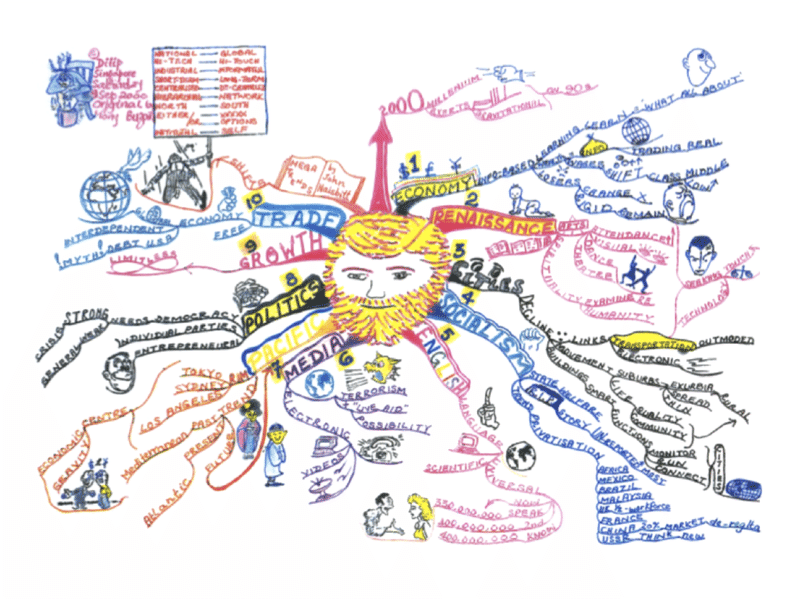 © Dilip
Singapore
Saturday
9 Sep 2000
Original by
NATIONAL — GLOBAL
HI-TECH — HI-TOUCH
INDUSTRIAL — INFORMATION
SHORT-TERM — LONG-TERM
CENTRALISED — DE-CENTRALISED
HIERARCHIES — NETWORK
NORTH — SOUTH
EITHER/OR — OPTIONS
SELF
SHIFTS
MEGA
TRENDS
by
John
Naisbitt
2000
MILLENIUM
STARTS
ON 90s
1
$ £ ¥
ECONOMY
INFO-BASED
LEARNING
LEARN
"WHAT ALL ABOUT"
INFO
TRADING
REAL
WARES
SHIFT
CLASS
MIDDLE
LOSERS
CHANGE
RIGID
REMAIN
2
RENAISSANCE
ARTS
ATTENDANCE
VISUAL
DANCE
THEATER
SPIRITUALITY
EXAMINE RE
HUMANITY
TOUCH
TECHNOLOGY
3
CITIES
DECLINE
LINES
TRANSPORTATION
OUTMODED
ELECTRONIC
MOVEMENT
SUBURBS
EXURBIA
RURAL
SPREAD
THIN
LIFE
QUALITY
COMMUNITY
BUILDINGS
SMART
FUNCTIONS
MONITOR
RUN
CONNECT
CITIES
4
SOCIALISM
STATE WELFARE
STORY
PRIVATISATION
AFRICA
MEXICO
BRAZIL
MALAYSIA
UK % WORKFORCE
FRANCE
CHINA 20% MARKET de-regltn
USSR THINK NEW
5
ENGLISH
LANGUAGE
SCIENTIFIC
NOW
350,000,000 SPEAK
400,000,000 2nd
400,000,000 KNOW
6
MEDIA
TERRORISM
+ "LIVE AID"
POSSIBILITY
ELECTRONIC
VIDEOS
7
PACIFIC
RIM
TOKYO
SYDNEY
LOS ANGELES
ECONOMIC CENTRE
GRAVITY
Mediterranean PAST
TRAN
Atlantic PRESENT
FUTURE
8
POLITICS
NEEDS DEMOCRACY
STRONG
CRISIS
INDIVIDIAL PARTIES
ENTREPRENEURIAL
9
GROWTH
LIMITLESS
10
TRADE
GLOBAL
ECONOMY
INTERDEPENDENT
FREE
!MYTH! DEBT USA